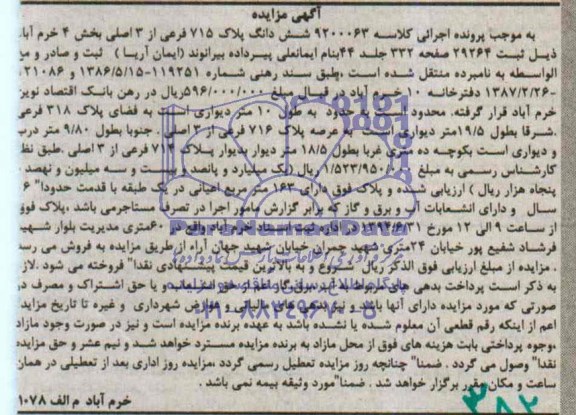 آگهی مزایده
به موجب پرونده اجرائی کلاسه ۹۲۰۰۰۶۳ شش دانگ پلاک ۷۱۵ فرعی از ۳ اصلی بخش ۴ خرم آباد
ذیل ثبت ۲۹۲۶۴ صفحه ۳۳۲ جلد ۴۴بنام ایمانعلی پیرداده بیرانوند (ایمان آریا ) ثبت و صادر و مع
الواسطه به نامبرده منتقل شده است ،طبق سند رهنی شماره ۱۱۹۲۵۱-۱۳۸۶/۵/۱۵ و ۲۱۰۸۶
-۱۳۸۷/۲/۲۶ دفترخانه ۱۰ خرم آباد در قبال مبلغ ۵۹۶/۰۰۰/۰۰۰ریال در رهن بانک اقتصاد نوین
خرم آباد قرار گرفته. محدود است به حدود به طول ۱۰ متر دیواری است به فضای پلاک ۳۱۸ فرعی
.شرقا بطول ۱۹/۵متر دیواری است به عرصه پلاک ۷۱۶ فرعی از ۳ اصلی . جنوبا بطول ۹/۸۰ متر درب
و دیواری است بکوچه ده متری غربا بطول ۱۸/۵ متر دیوار بدیوار پلاک ۷۱۴ فرعی از ۳ اصلی .طبق نظر
کارشناس رسمی به مبلغ ۱/۵۲۳/۹۵۰/۰۰۰ ریال (یک میلیارد و پانصد و بیست و سه میلیون و نهصد و
پنجاه هزار ریال ) ارزیابی شده و پلاک فوق دارای ۱۶۳ متر مربع اعیانی در یک طبقه با قدمت حدودا" ۶
سال و دارای انشعابات آب و برق و گاز که برابر گزارش مامور اجرا در تصرف مستاجرمی باشد ،پلاک فوق
از ساعت ۹ الی ۱۲ مورخ ۱۳۹۴/۶/۳۱ در اداره ثبت اسناد خرم آباد واقع در ۶۰متری مدیریت بلوار شهید
فرشاد شفیع پور خیابان ۲۴متری شهید چمران خیابان شهید جهان آراء از طریق مزایده به فروش می رسد
. مزایده از مبلغ ارزیابی فوق الذکر ریال شروع و به بالاترین قیمت پیشنهادی نقدا" فروخته می شود .لازم
به ذکر است پرداخت بدهی های مربوط به آب ،برق،گاز اعم از حق انشعاب و یا حق اشتراک و مصرف در
صورتی که مورد مزایده دارای آنها باشد و نیز بدهی های مالیاتی و عوارض شهرداری و غیره تا تاریخ مزایده
اعم از اینکه رقم قطعی آن معلوم شده یا نشده باشد به عهده برنده مزایده است و نیز در صورت وجود مازاد
،وجوه پرداختی بابت هزینه های فوق از محل مازاد به برنده مزایده مسترد خواهد شد و نیم عشر و حق مزایده
نقدا" وصول می گردد . ضمنا" چنانچه روز مزایده تعطیل رسمی گردد ،مزایده روز اداری بعد از تعطیلی در همان
ساعت و مکان مقرر برگزار خواهد شد . ضمنا"مورد وثیقه بیمه نمی باشد .
خرم آباد م الف ۱۰۷۸
۳۸۲